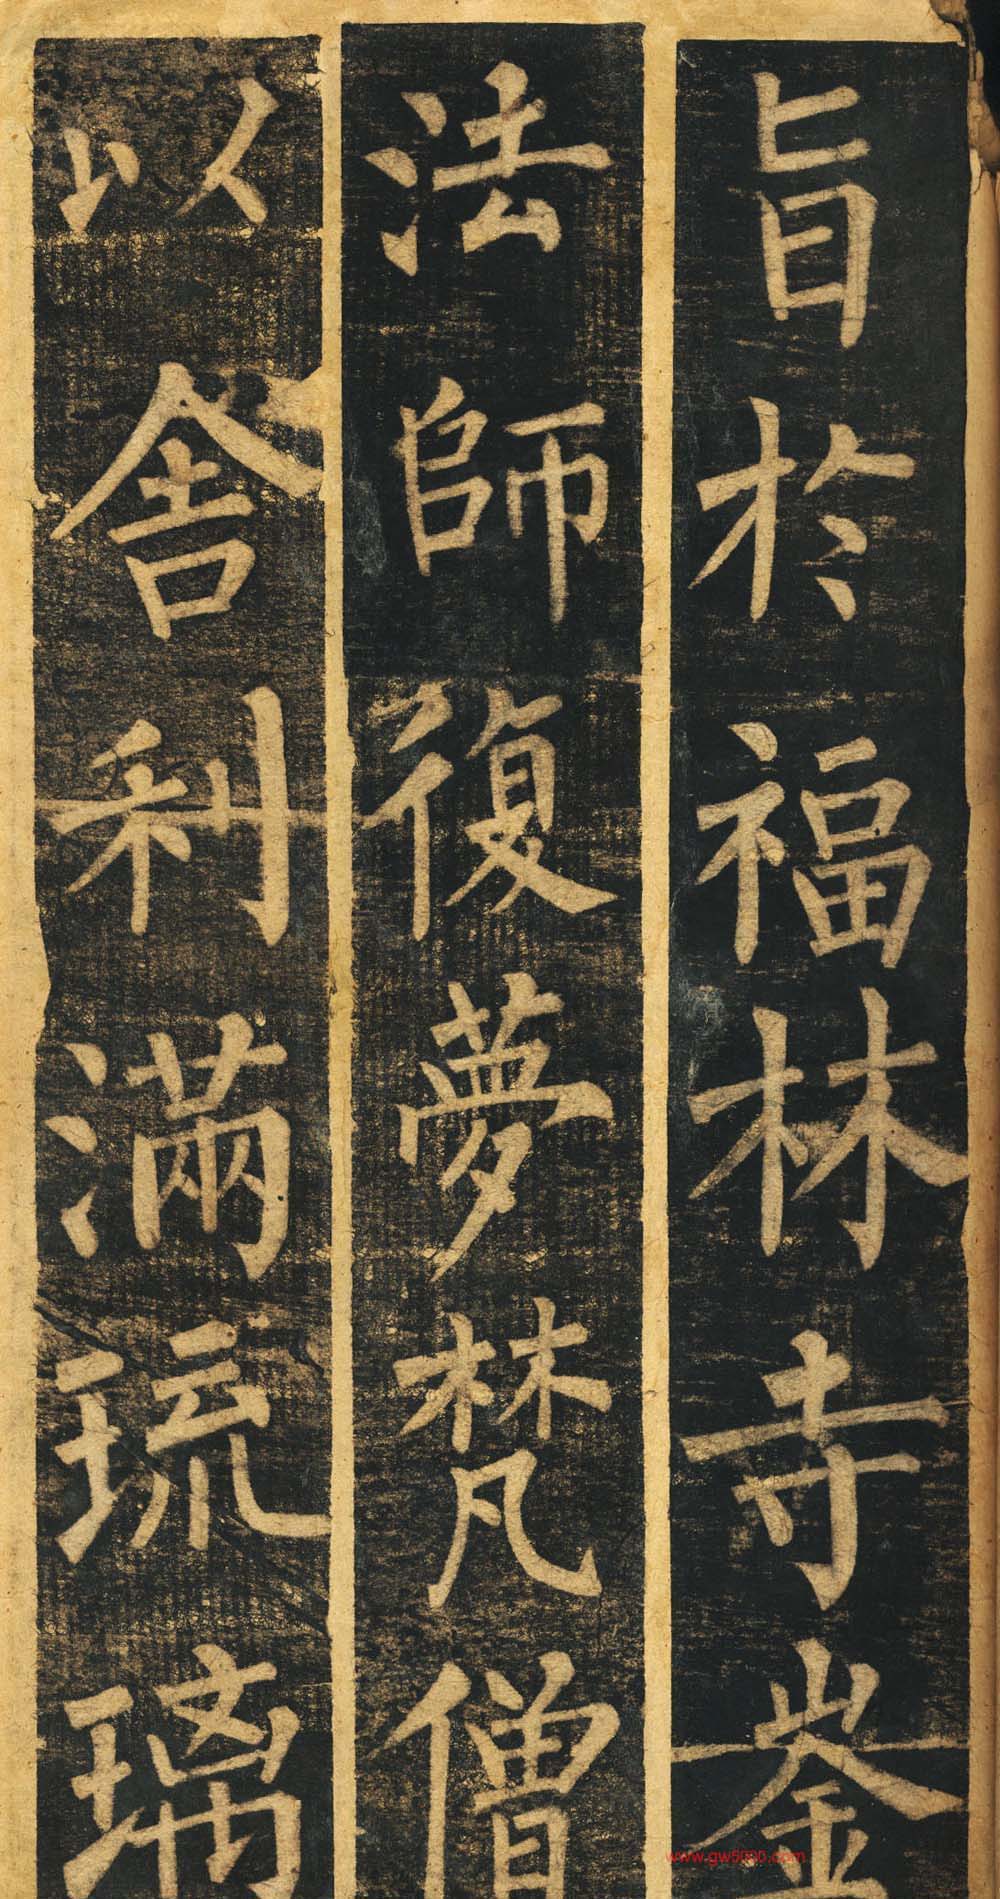 旨於福林寺崟
法師復夢梵僧
以舍利滿琉璃